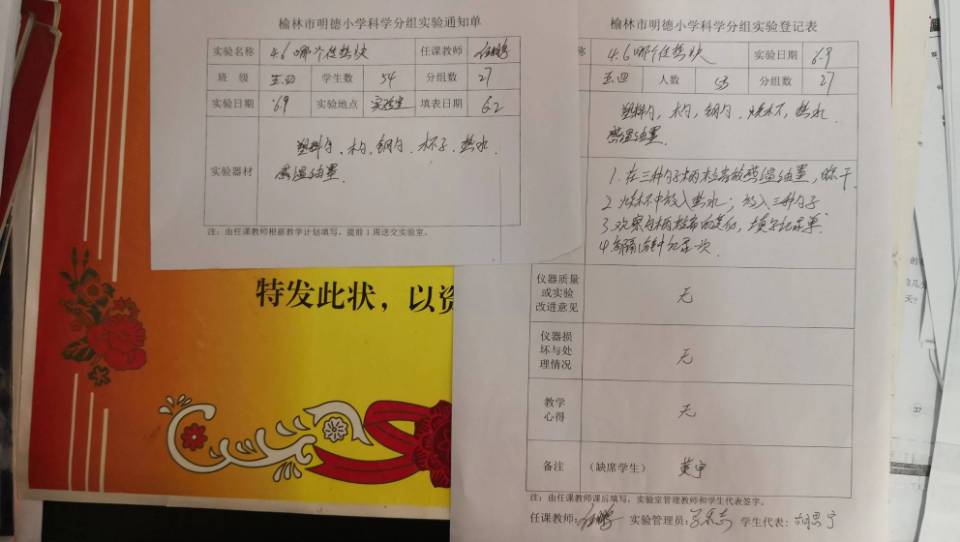 榆林市明德小学科学分组实验通知单
实验名称 4.6哪个传热快 任课教师
班 级 五.四 学生数 54 分组数 27
实验日期 6.9 实验地点 实验室 填表日期 6.2
实验器材
塑料勺、木勺、钢勺、杯子、热水、
感温油墨.
注:由任课教师根据教学计划填写,提前1周送交实验室。
榆林市明德小学科学分组实验登记表
称 4.6哪个传热快 实验日期 6.9
五.四 人数 53 分组数 27
塑料勺,木勺,钢勺,烧杯,热水
感温油墨.
1.在三种勺子柄 感温油墨,晾干
2 烧杯中放入热水;放入三种勺子
3.观察 变化,填写记录单.
4. 记录一次.
仪器质量
或实验
改进意见
无
仪器损
坏与处
理情况
无
教学
心得
无
备注 (缺席学生)
注:由任课教师课后填写,实验室管理教师和学生代表签字。
任课教师: 实验管理员: 学生代表:
特发此状,以资